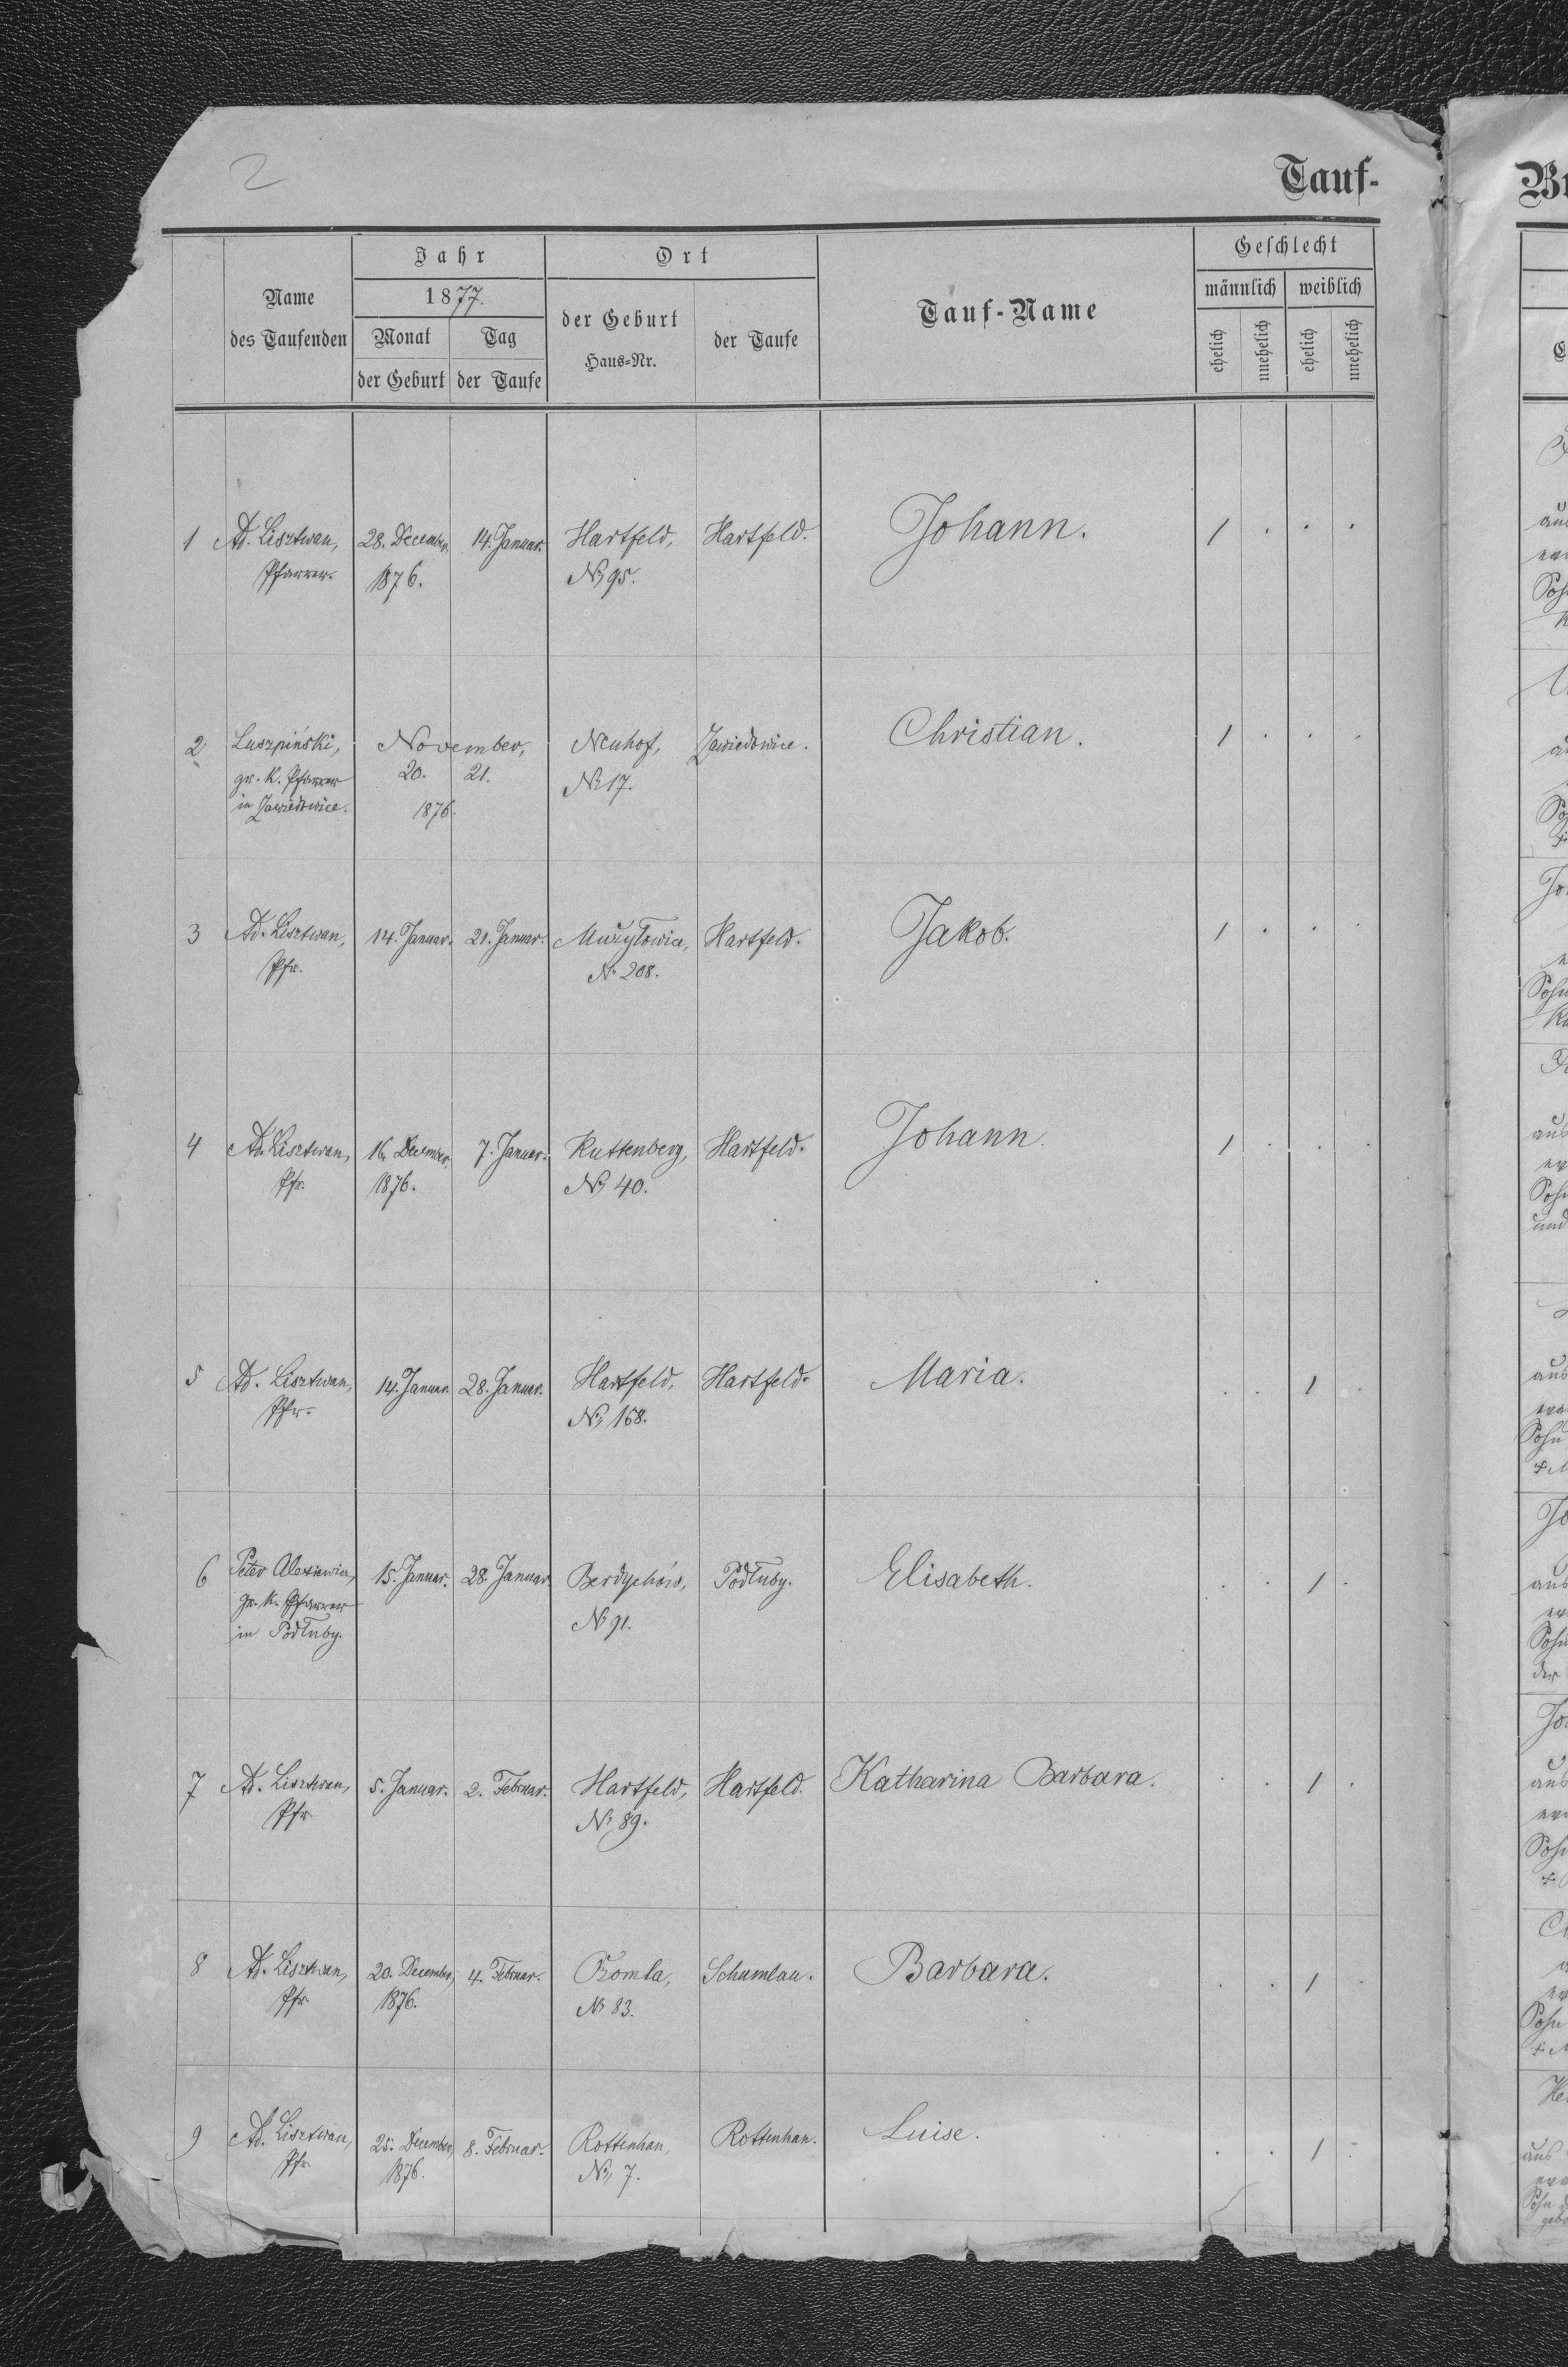 2
Tauf-
Name
des Taufenden
Jahr
1877.
Monat
Tag
der Geburt
der Taufe
Ort
der Geburt
Haus-Nr.
der Taufe
Tauf-Name
Geschlecht
männlich
weiblich
ehelich
unehelich
ehelich
unehelich
1 Ad. Lisztwan, 28. December, 14. Januar. Hartfeld, Hartfeld. Johann. 1 . . .
Pfarrer. 1876. No 95.
2 Luszpiński, November, Neuhof, Zawidowice. Christian. 1 . . .
gr. k. Pfarrer 20. 21. No 17.
in Zawidowice. 1876.
3 Ad. Lisztwan, 14. Januar. 21. Januar. Mużyłowice, Hartfeld. Jakob. 1 . . .
Pfr. No 208.
4 Ad. Lisztwan, 16. December. 7. Januar. Kuttenberg, Hartfeld. Johann. 1 . . .
Pfr. 1876. No 40.
5 Ad. Lisztwan, 14. Januar. 28. Januar. Hartfeld, Hartfeld. Maria. . . 1 .
Pfr. No 158.
6 Peter 15. Januar. 28. Januar. Berdychów, Podłuby. Elisabeth. . . 1 .
gr. k. Pfarrer No 91.
in Podłuby.
7 Ad. Lisztwan, 5. Januar. 2. Februar. Hartfeld, Hartfeld. Katharina Barbara. . . 1 .
Pfr. No 89.
8 Ad. Lisztwan, 20. December, 4. Februar. Ożomla, Schumlau. Barbara. . . 1 .
Pfr. 1876. No 83.
9 Ad. Lisztwan, 25. December, 8. Februar. Rottenhan, Rottenhan. Luise. . . 1 .
Pfr. 1876. No 7.